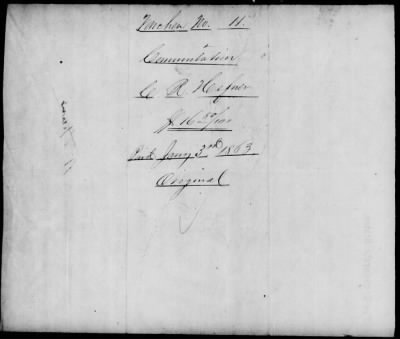 Voucher No. 11.
Commutation
C R. Hefner
Paid Jany 3rd 1863
Original